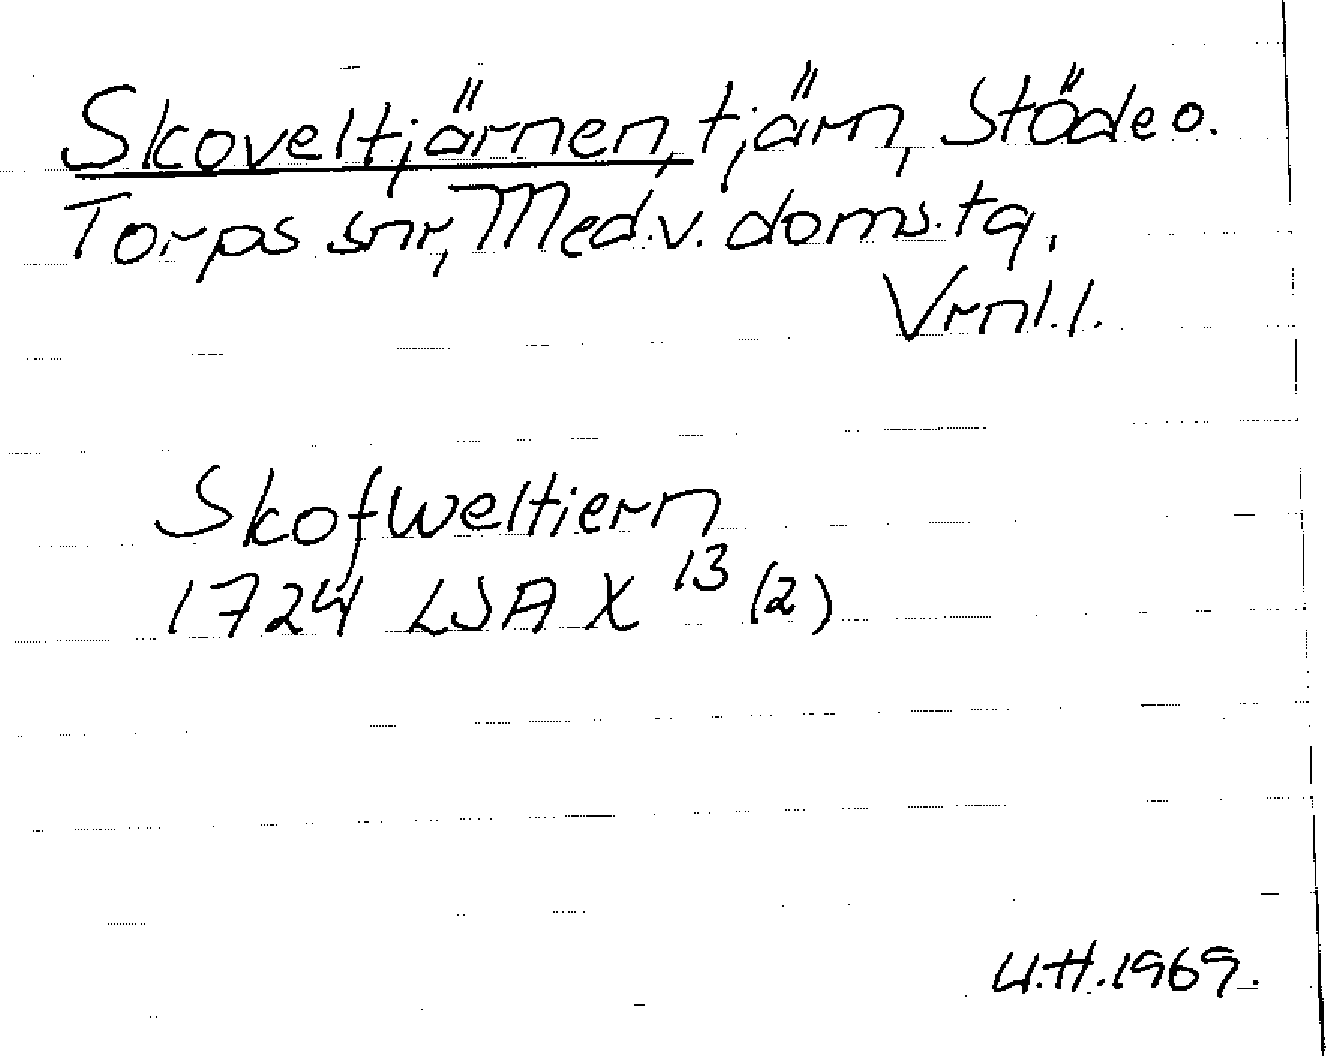 Skoveltjärnen, tjärn, Stöde o.
Torps snr, Med.v. doms.tg.
Vrnl.l.
Skofweltiern
1724 LSA X 13 (2)
U.H. 1969.